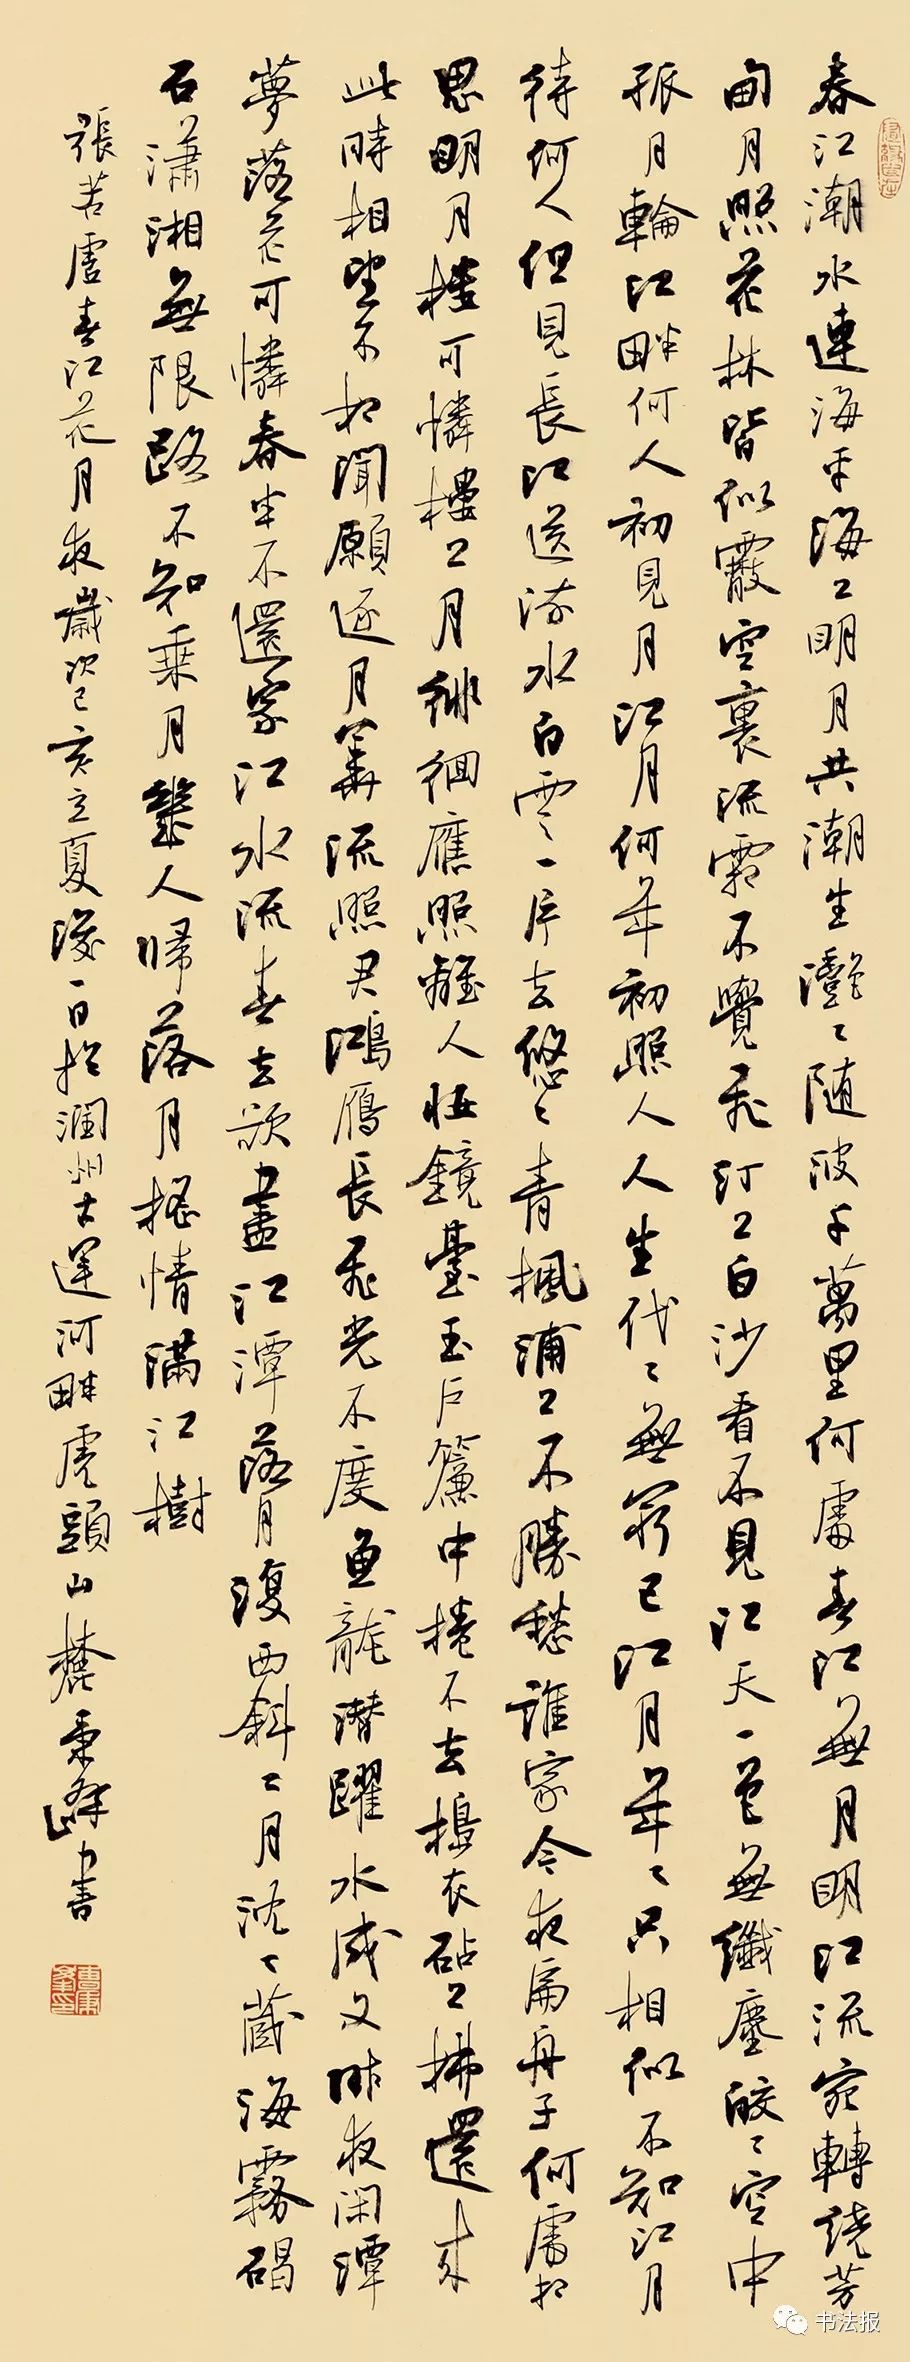 春江潮水連海平海上明月共潮生灩々随波千萬里何處春江無月明江流宛轉繞芳
甸月照花林皆似霰空裏流霜不覺飛汀上白沙看不見江天一色無纖塵皎々空中
孤月輪江畔何人初見月江月何年初照人人生代々無窮已江月年々只相似不知江月
待何人但見長江送流水白雲一片去悠々青楓浦上不勝愁誰家今夜扁舟子何處相
思明月樓可憐樓上月徘徊應照離人妝鏡臺玉戶簾中捲不去搗衣砧上拂還來
此時相望不相聞願逐月華流照君鴻雁長飛光不度魚龍潛躍水成文昨夜閑潭
夢落花可憐春半不還家江水流春去欲盡江潭落月復西斜々月沈々藏海霧碣
石瀟湘無限路不知乘月幾人歸落月搖情滿江樹
張若虛春江花月夜歲次己亥立夏後一日於潤州古運河畔虎頭山麓秉峰書
曹秉峰印
书法报